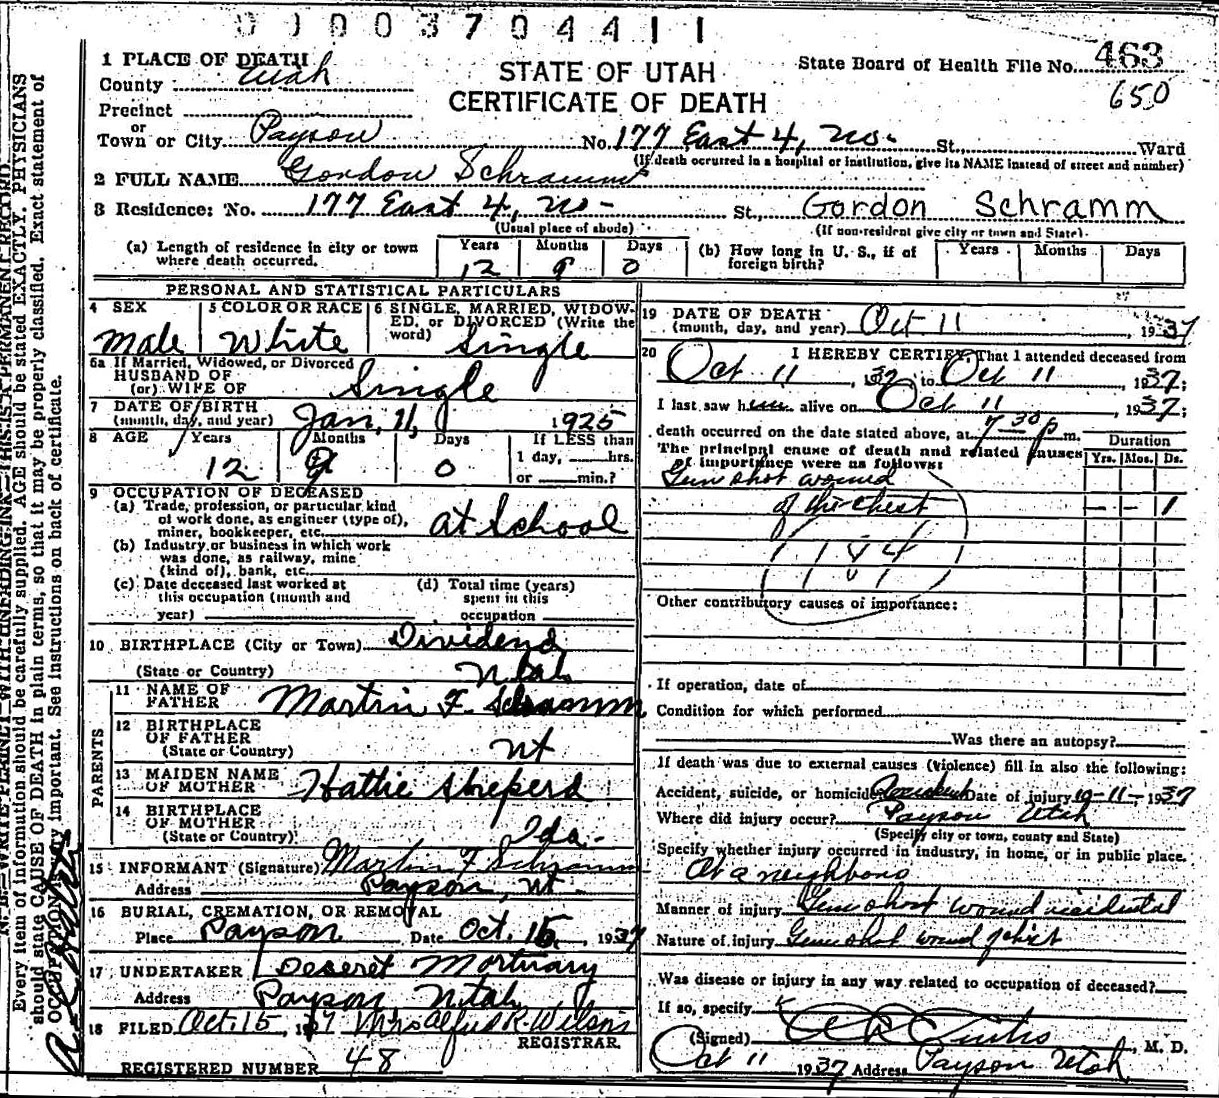 0 0 0 3 7 0 4 4 1 1
1 PLACE OF DEATH
County Utah
Precinct
or
Town or City Payson
STATE OF UTAH
CERTIFICATE OF DEATH
State Board of Health File No. 463
650
No. 177 East 4, No. St. Ward
(If death occurred in a hospital or institution, give its NAME instead of street and number)
2 FULL NAME Gordon Schramm
3 Residence: No. 177 East 4, No- St., Gordon Schramm
(Usual place of abode) (If non-resident give city or town and State)
(a) Length of residence in city or town where death occurred. Years 12 Months 9 Days 0
(b) How long in U. S., if of foreign birth? Years Months Days
PERSONAL AND STATISTICAL PARTICULARS
4 SEX Male
5 COLOR OR RACE White
6 SINGLE, MARRIED, WIDOWED, or DIVORCED (Write the word) Single
6a If Married, Widowed, or Divorced
HUSBAND OF
(or) WIFE OF Single
7 DATE OF BIRTH
(month, day, and year) Jan. 11, 1925
8 AGE Years 12 Months 9 Days 0
If LESS than
1 day, hrs.
or min.?
9 OCCUPATION OF DECEASED
(a) Trade, profession, or particular kind
of work done, as engineer (type of),
miner, bookkeeper, etc. at School
(b) Industry or business in which work
was done, as railway, mine
(kind of), bank, etc.
(c) Date deceased last worked at
this occupation (month and
year)
(d) Total time (years)
spent in this
occupation
10 BIRTHPLACE (City or Town) Dividend
(State or Country) Utah
PARENTS
11 NAME OF
FATHER Martin F. Schramm
12 BIRTHPLACE
OF FATHER
(State or Country) Ut
13 MAIDEN NAME
OF MOTHER Hattie Sheperd
14 BIRTHPLACE
OF MOTHER
(State or Country) Ida-
15 INFORMANT (Signature) Martin F Schramm
Address Payson, Ut-
16 BURIAL, CREMATION, OR REMOVAL
Place Payson Date Oct. 15, 1937
17 UNDERTAKER Deseret Mortuary
Address Payson Utah
18 FILED Oct. 15, 1937 Mrs Alfred R. Wilson
REGISTRAR.
REGISTERED NUMBER 48
19 DATE OF DEATH
(month, day, and year) Oct 11, 1937
20 I HEREBY CERTIFY, That I attended deceased from
Oct 11, 1937 to Oct 11, 1937;
I last saw him alive on Oct 11, 1937;
death occurred on the date stated above, at 7-30 p m.
The principal cause of death and related causes
of importance were as follows:
Duration
Yrs. Mos. Ds.
Gun shot wound
of the chest - - 1
Other contributory causes of importance:
If operation, date of
Condition for which performed
Was there an autopsy?
If death was due to external causes (violence) fill in also the following:
Accident, suicide, or homicide Accident Date of injury 10-11-1937
Where did injury occur? Payson Utah
(Specify city or town, county and State)
Specify whether injury occurred in industry, in home, or in public place.
At a neighbors
Manner of injury Gun shot wound accidental
Nature of injury Gun shot wound of chest
Was disease or injury in any way related to occupation of deceased?
If so, specify
(Signed) Curtis, M. D.
Oct 11 1937 Address Payson Utah
N. B.—WRITE PLAINLY WITH UNFADING INK—THIS IS A PERMANENT RECORD.
Every item of information should be carefully supplied. AGE should be stated EXACTLY. PHYSICIANS
should state CAUSE OF DEATH in plain terms, so that it may be properly classified. Exact statement of
OCCUPATION is very important. See instructions on back of certificate.